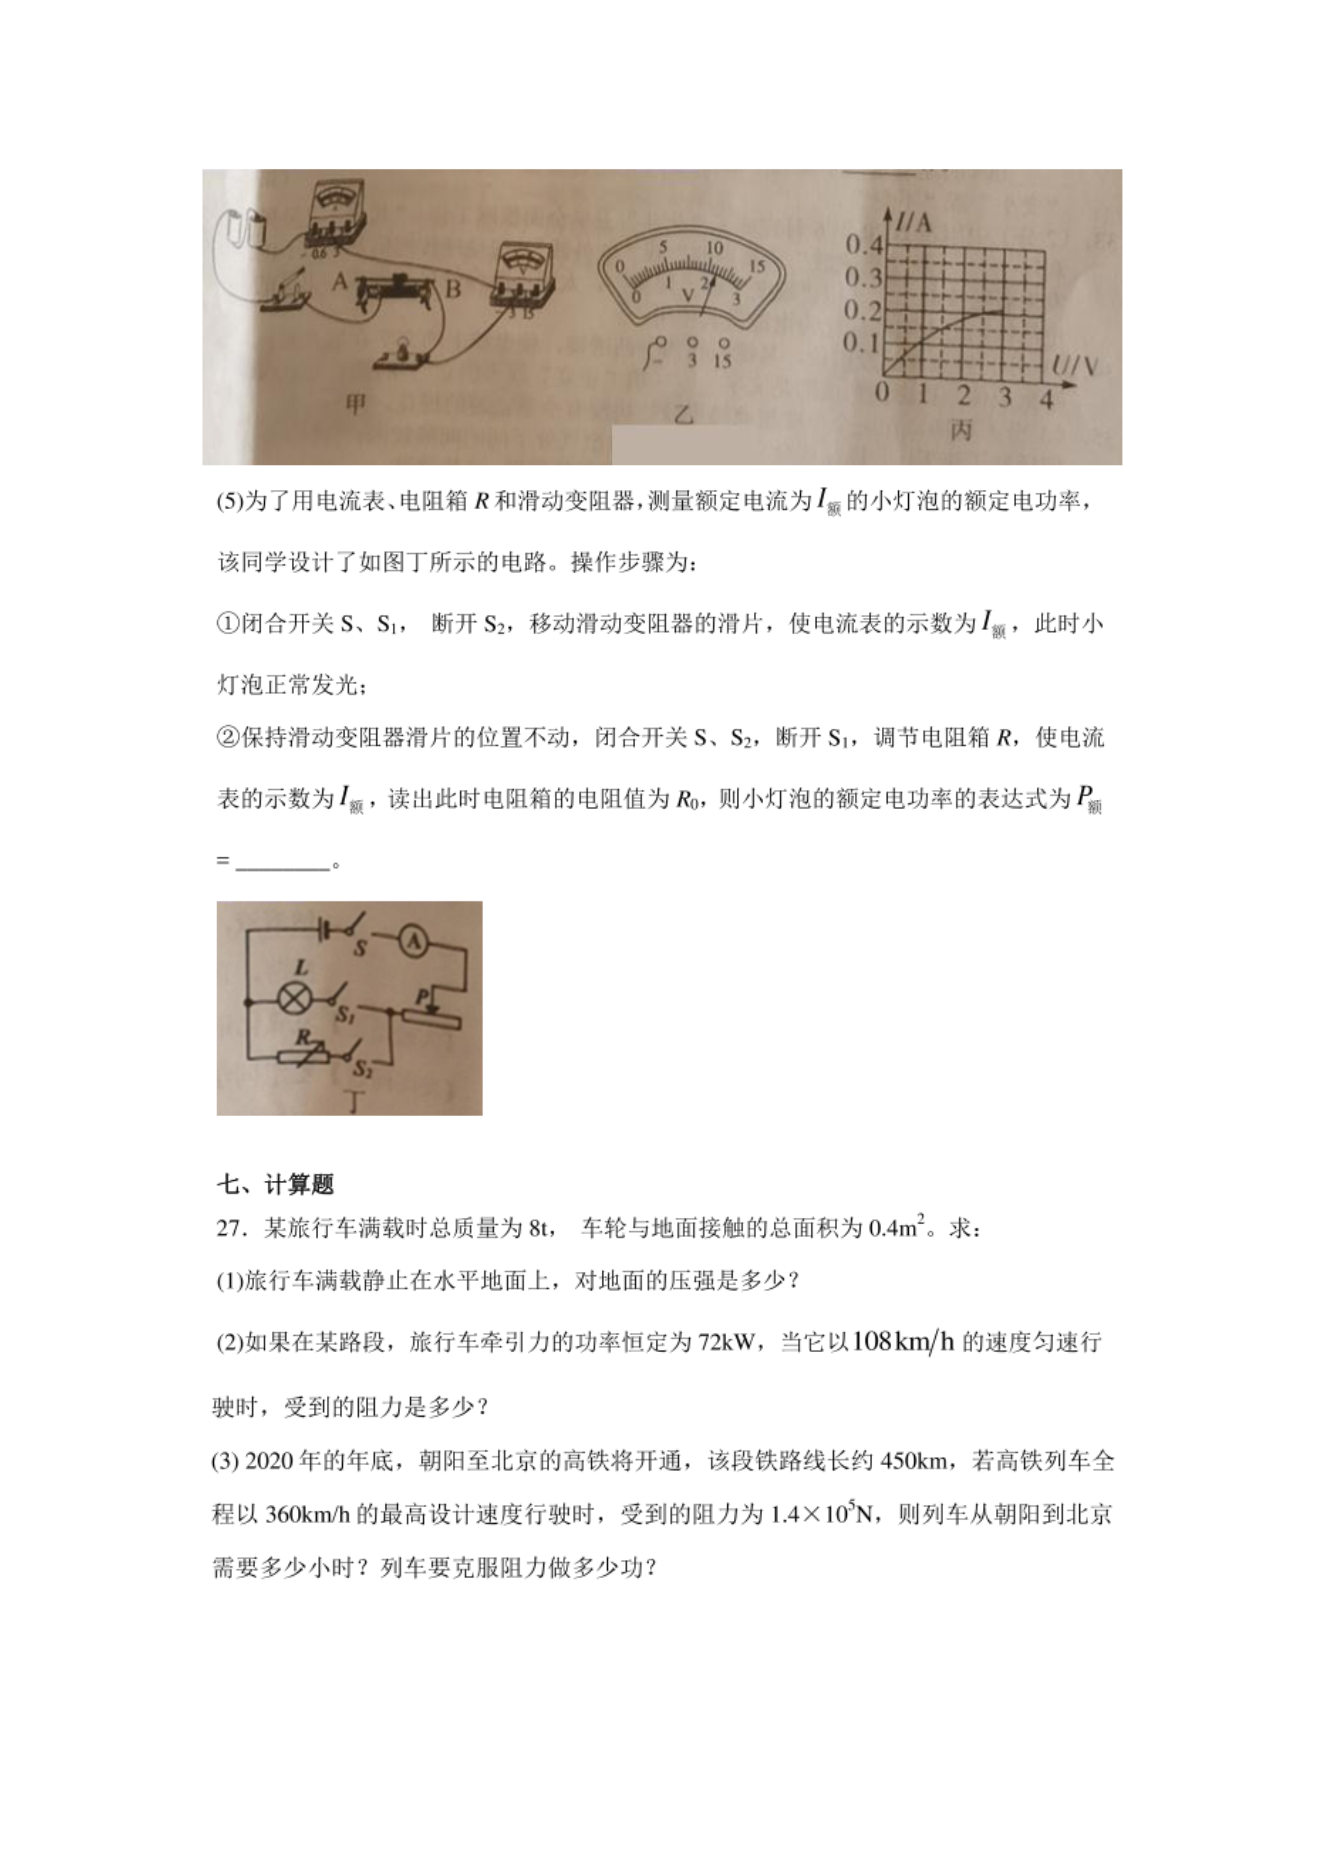 0.6 3
A
B
甲
0 5 10 15
0 1 2 3
V
- 3 15
乙
I/A
0.4
0.3
0.2
0.1
0 1 2 3 4
U/V
丙
(5)为了用电流表、电阻箱 R 和滑动变阻器,测量额定电流为 I额 的小灯泡的额定电功率，
该同学设计了如图丁所示的电路。操作步骤为:
①闭合开关 S、S1， 断开 S2，移动滑动变阻器的滑片，使电流表的示数为 I额 ，此时小
灯泡正常发光;
②保持滑动变阻器滑片的位置不动，闭合开关 S、S2，断开 S1，调节电阻箱 R，使电流
表的示数为 I额 ，读出此时电阻箱的电阻值为 R0，则小灯泡的额定电功率的表达式为 P额
= ________。
S
A
L
P
S1
R
S2
丁
七、计算题
27．某旅行车满载时总质量为 8t， 车轮与地面接触的总面积为 0.4m2。求:
(1)旅行车满载静止在水平地面上，对地面的压强是多少?
(2)如果在某路段，旅行车牵引力的功率恒定为 72kW，当它以108km/h 的速度匀速行
驶时，受到的阻力是多少?
(3) 2020 年的年底，朝阳至北京的高铁将开通，该段铁路线长约 450km，若高铁列车全
程以 360km/h 的最高设计速度行驶时，受到的阻力为 1.4×105N，则列车从朝阳到北京
需要多少小时? 列车要克服阻力做多少功?